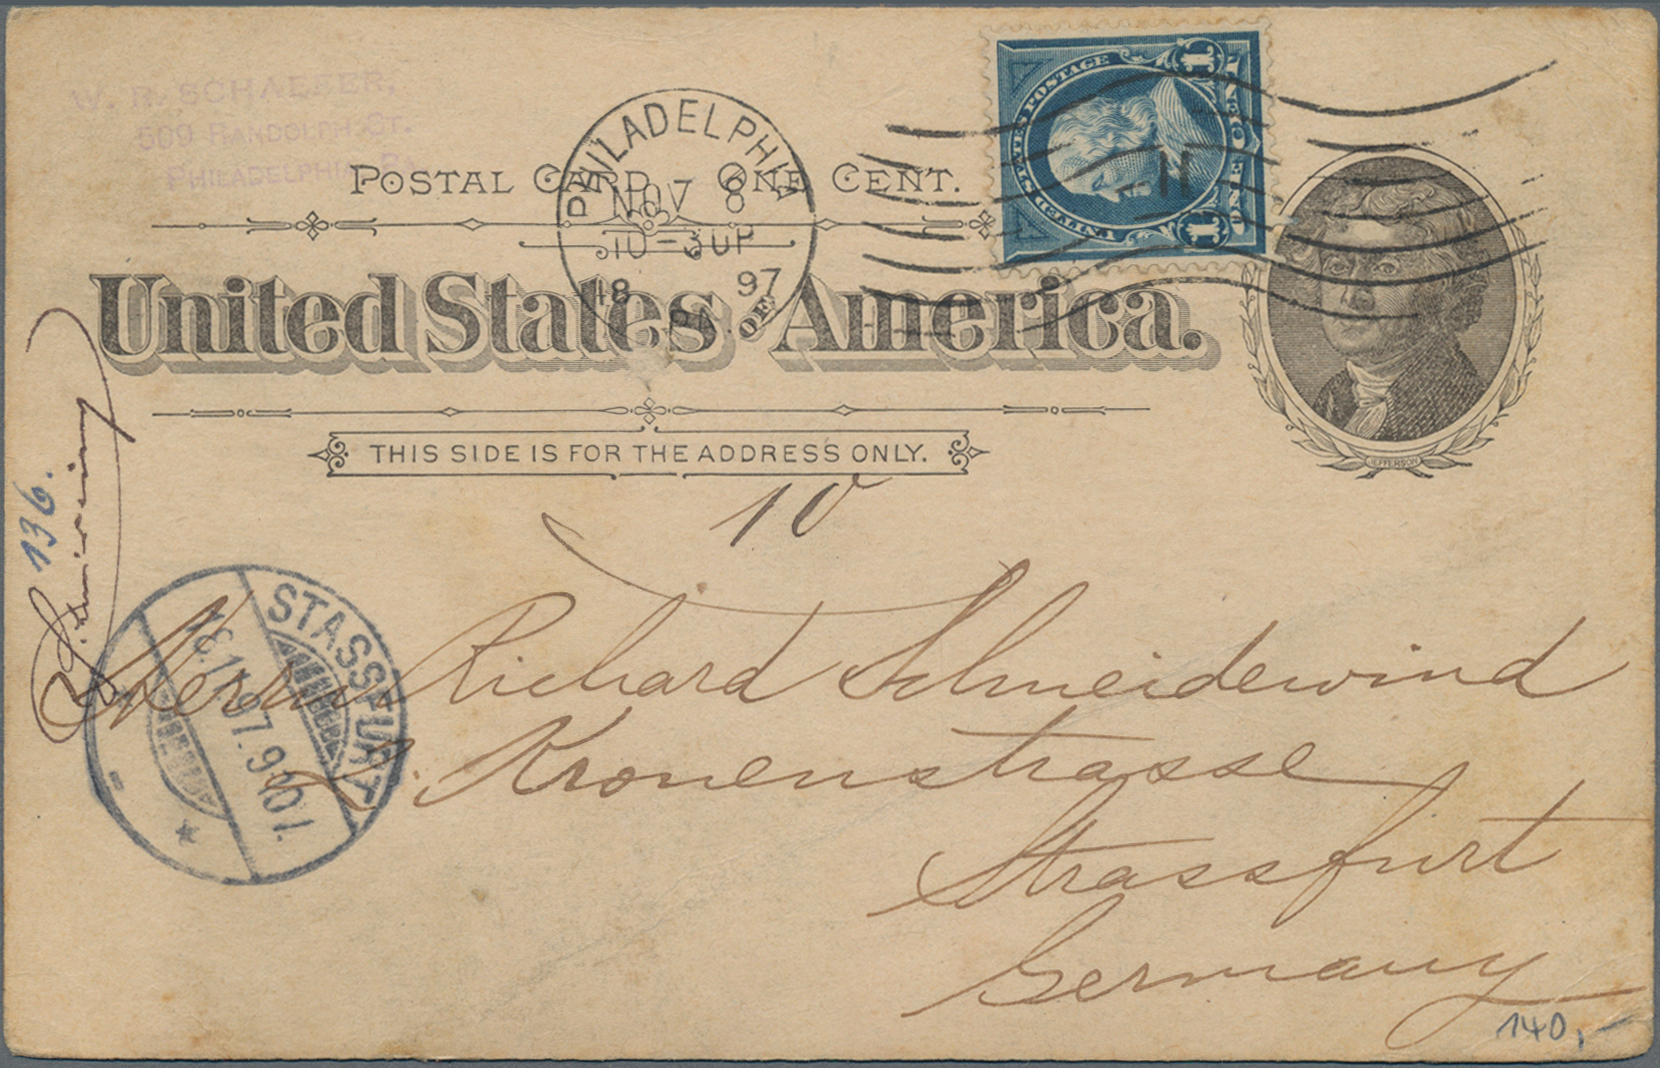 W. R. SCHAEFER,
509 RANDOLPH ST.
PHILADELPHIA, PA.
POSTAL CARD ONE CENT.
PHILADELPHIA
NOV 8
10-30P
97
PA.
UNITED STATES POSTAGE
ONE CENT
1 1
United States OF America.
JEFFERSON
THIS SIDE IS FOR THE ADDRESS ONLY.
10
136.
STASSFURT
Herrn Richard Schneidewind
Kronenstrasse
Strassfurt
Germany
140,-